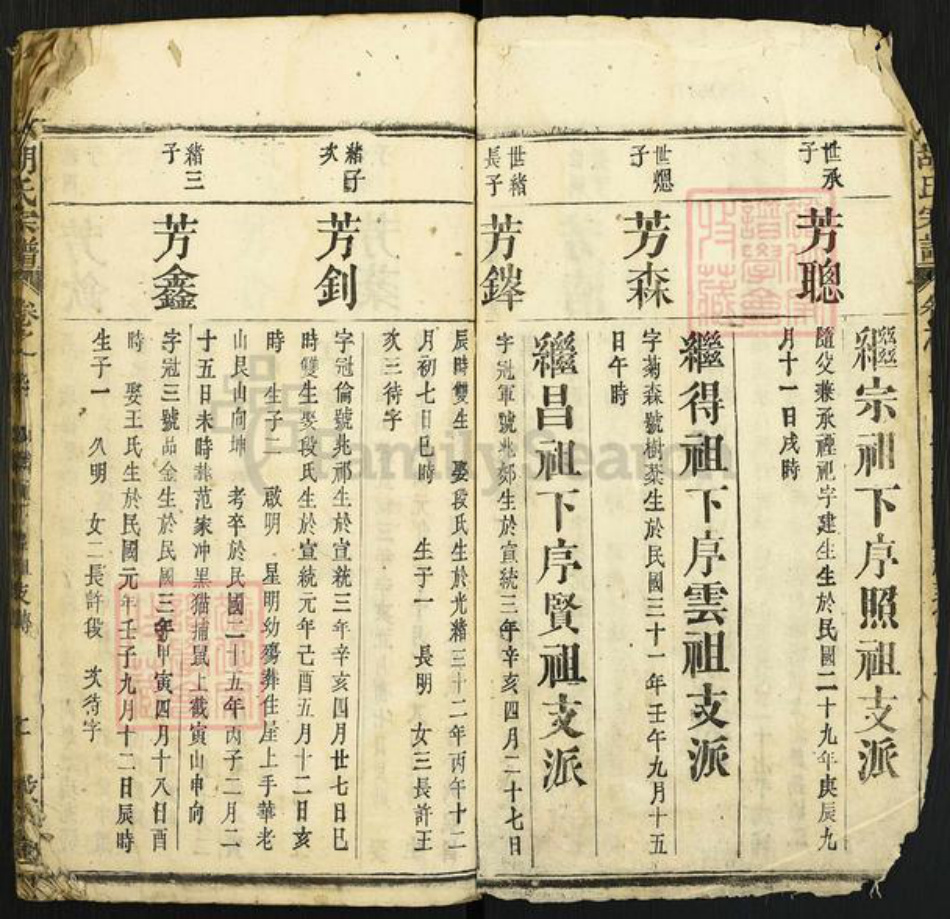 胡氏宗譜
繼宗祖下序照祖支派
世承子
芳聰
隨父兼承禋祀字建生生於民國二十九年庚辰九
月十一日戌時
繼得祖下序雲祖支派
世熜子
芳森
字菊森號樹棻生於民國三十一年壬午九月十五
日午時
繼昌祖下序賢祖支派
世緒長子
芳鏵
字冠軍號兆郊生於宣統三年辛亥四月二十七日
辰時雙生 娶段氏生於光緒三十二年丙午十二
月初七日巳時 生子一 長明 女三長許王
次三待字
緒次子
芳釗
字冠倫號兆祁生於宣統三年辛亥四月廿七日巳
時雙生娶段氏生於宣統元年己酉五月十二日亥
時 生子二 啟明 星明幼殤葬住屋上手華老
山艮山向坤 考卒於民國二十五年丙子二月二
十五日未時葬范家冲黑猫捕鼠上截寅山申向
緒三子
芳鑫
字冠三號品金生於民國三年甲寅四月十八日酉
時 娶王氏生於民國元年壬子九月十二日辰時
生子一 久明 女二長許段 次待字
胡氏宗譜 卷之
FamilySearch